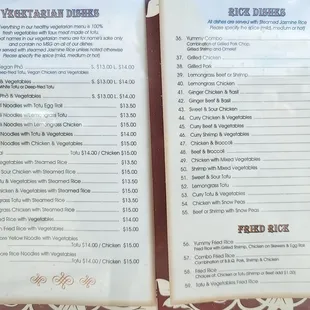 VEGETARIAN DISHES
Everything in our healthy vegetarian menu is 100%
fresh vegetables with tofu
of names in our vegetarian menu are for name's sake only
and contain no MSG on all of our dishes
served with Jasmine Rice unless noted otherwise
Please specify the spice (mild, medium or hot)
Vegan Phở S. $13.00 L. $14.00
Deep-Fried Tofu, Vegan Chicken and Vegetables
Phở & Vegetables S. $13.00 L. $14.00
White Tofu or Deep-fried Tofu
Phở & Vegetables S. $13.00 L. $14.00
Noodles with Tofu Egg Roll $13.50
Noodles with Lemongrass Tofu $13.50
Noodles with Lemongrass Chicken $13.50
Noodles with Tofu & Vegetables $13.50
Noodles with Chicken & Vegetables $13.50
Tofu $14.00 / Chicken $15.00
Vegetables with Steamed Rice $15.00
Sour Chicken with Steamed Rice $15.00
Chicken & Vegetables with Steamed Rice $15.00
Tofu with Steamed Rice $15.00
Chicken with Steamed Rice $15.00
Fried Rice with Vegetables $14.00
Chicken Fried Rice with Vegetables $15.00
Yellow Noodle with Vegetables
Tofu $14.00 / Chicken $15.00
Rice Noodle with Vegetables
Tofu $14.00 / Chicken $15.00
RICE DISHES
All dishes are served with Steamed Jasmine Rice
Please specify the spice (mild, medium or hot)
36. Yummy Combo
Combination of Grilled Pork Chop,
Grilled Shrimp and Omelet
37. Grilled Chicken
38. Grilled Pork
39. Lemongrass Beef or Shrimp
40. Lemongrass Chicken
41. Ginger Chicken & Basil
42. Ginger Beef & Basil
43. Sweet & Sour Chicken
44. Curry Chicken & Vegetables
45. Curry Beef & Vegetables
46. Curry Shrimp & Vegetables
47. Chicken & Broccoli
48. Beef & Broccoli
49. Chicken with Mixed Vegetables
50. Shrimp with Mixed Vegetables
51. Sweet & Sour Tofu
52. Lemongrass Tofu
53. Curry Tofu & Vegetables
54. Chicken with Snow Peas
55. Beef with Snow Peas
FRIED RICE
56. Yummy Fried Rice
Fried Rice with Grilled Shrimp, Chicken on Skewers & Egg Roll
57. Combo Fried Rice
Combination of B.B.Q. Pork, Shrimp & Chicken
58. Fried Rice
Choices of: Chicken or Tofu (Shrimp or Beef Add $1.00)
59. Tofu & Vegetables Fried Rice